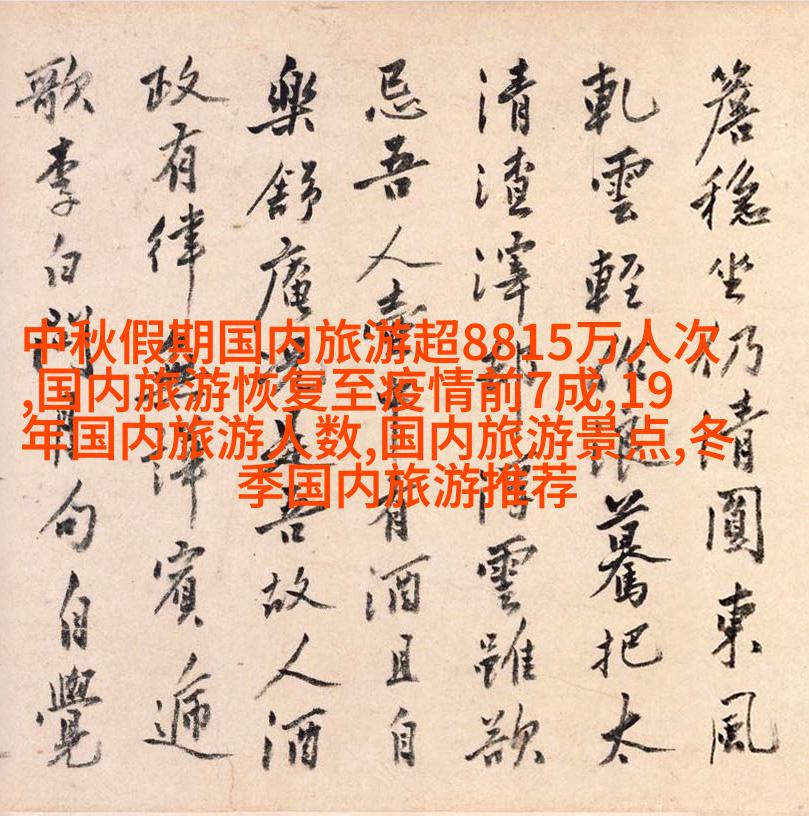 中秋假期国内旅游超8815万人次
,国内旅游恢复至疫情前7成,19
年国内旅游人数,国内旅游景点,冬
季国内旅游推荐
簷穩坐仍情圓東風
軋雲輕驀把太
清渣滓雲雖欲
忌吾人有酒且自
樂舒庵吾故人酒
政有律賓遞
歌李白句自覺